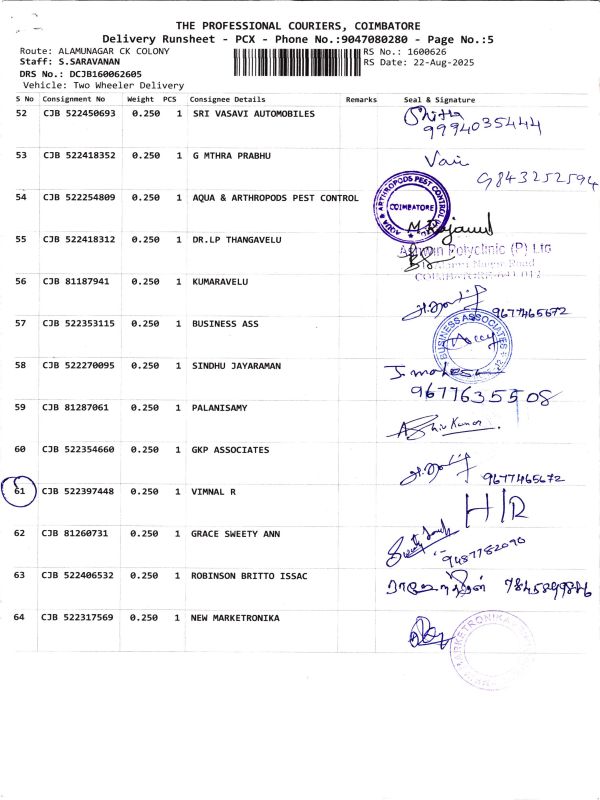 THE PROFESSIONAL COURIERS, COIMBATORE
Delivery Runsheet - PCX - Phone No.:9047080280 - Page No.:5
Route: ALAMUNAGAR CK COLONY
RS No.: 1600626
Staff: S.SARAVANAN
RS Date: 22-Aug-2025
DRS No.: DCJB160062605
Vehicle: Two Wheeler Delivery
S No Consignment No Weight PCS Consignee Details Remarks Seal & Signature
52 CJB 522450693 0.250 1 SRI VASAVI AUTOMOBILES
9994035444
53 CJB 522418352 0.250 1 G MTHRA PRABHU
9843252594
54 CJB 522254809 0.250 1 AQUA & ARTHROPODS PEST CONTROL
AQUA & ARTHROPODS PEST CONTROL
COIMBATORE
55 CJB 522418312 0.250 1 DR.LP THANGAVELU
Ashwin Polyclinic (P) Ltd
56 CJB 81187941 0.250 1 KUMARAVELU
9677465672
57 CJB 522353115 0.250 1 BUSINESS ASS
BUSINESS ASSOCIATES
58 CJB 522270095 0.250 1 SINDHU JAYARAMAN
9677635508
59 CJB 81287061 0.250 1 PALANISAMY
60 CJB 522354660 0.250 1 GKP ASSOCIATES
9677465672
61 CJB 522397448 0.250 1 VIMNAL R
H/R
62 CJB 81260731 0.250 1 GRACE SWEETY ANN
9487782090
63 CJB 522406532 0.250 1 ROBINSON BRITTO ISSAC
64 CJB 522317569 0.250 1 NEW MARKETRONIKA
MARKETRONIKA